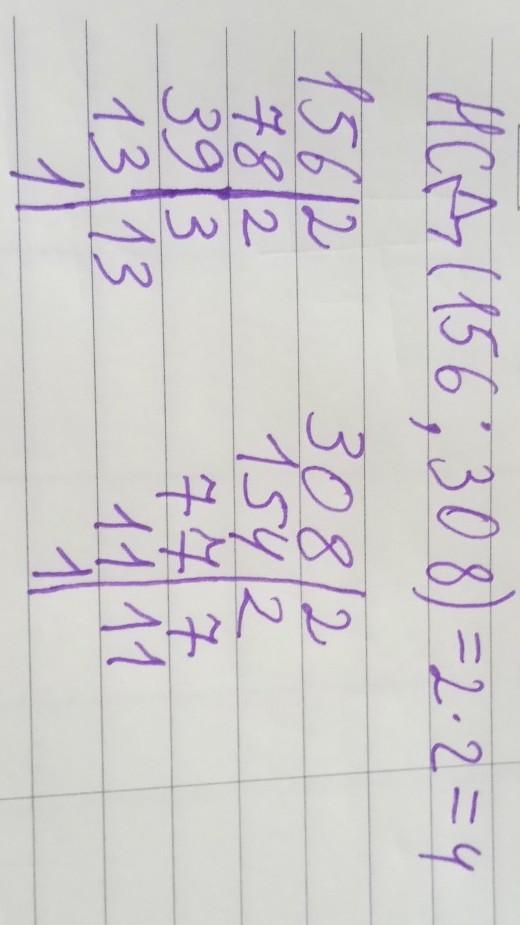 НСД(156;308)=2·2=4
156|2 308|2
78|2 154|2
39|3 77|7
13|13 11|11
1| 1|